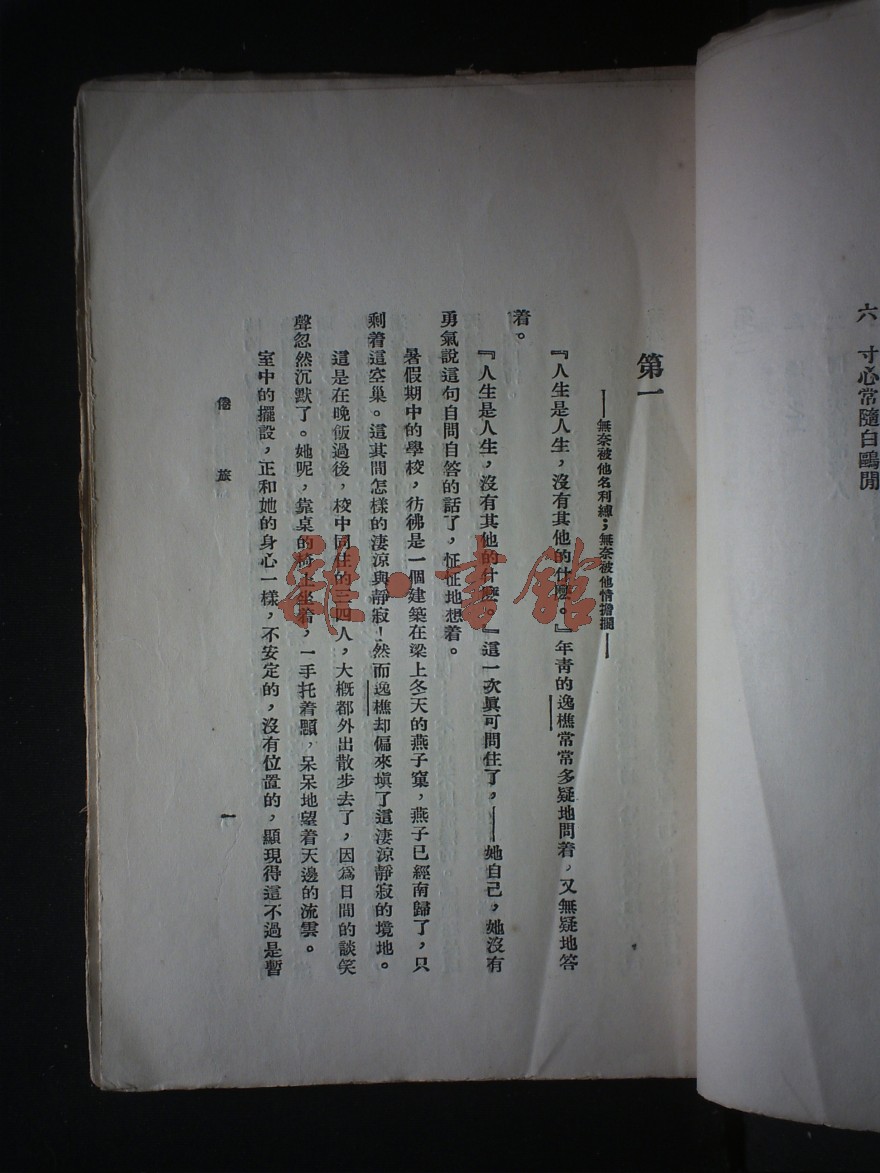 六　寸心常隨白鷗閒
第一
——無奈被他名利縛；無奈被他情擔擱——
『人生是人生，沒有其他的什麼。』年靑的逸樵常常多疑地問着，又無疑地答
着。
『人生是人生，沒有其他的什麼。』這一次眞可問住了，——她自己，她沒有
勇氣說這句自問自答的話了，怔怔地想着。
暑假期中的學校，彷彿是一個建築在梁上冬天的燕子窠，燕子已經南歸了，只
剩着這空巢。這其間怎樣的淒涼與靜寂！然而逸樵却偏來塡了這淒涼靜寂的境地。
這是在晚飯過後，校中同住的三四人，大槪都外出散步去了，因爲日間的談笑
聲忽然沉默了。她呢，靠桌的椅上坐着，一手托着顋，呆呆地望着天邊的流雲。
室中的擺設，正和她的身心一樣，不安定的，沒有位置的，顯現得這不過是暫
倦旅
一
羣·書館